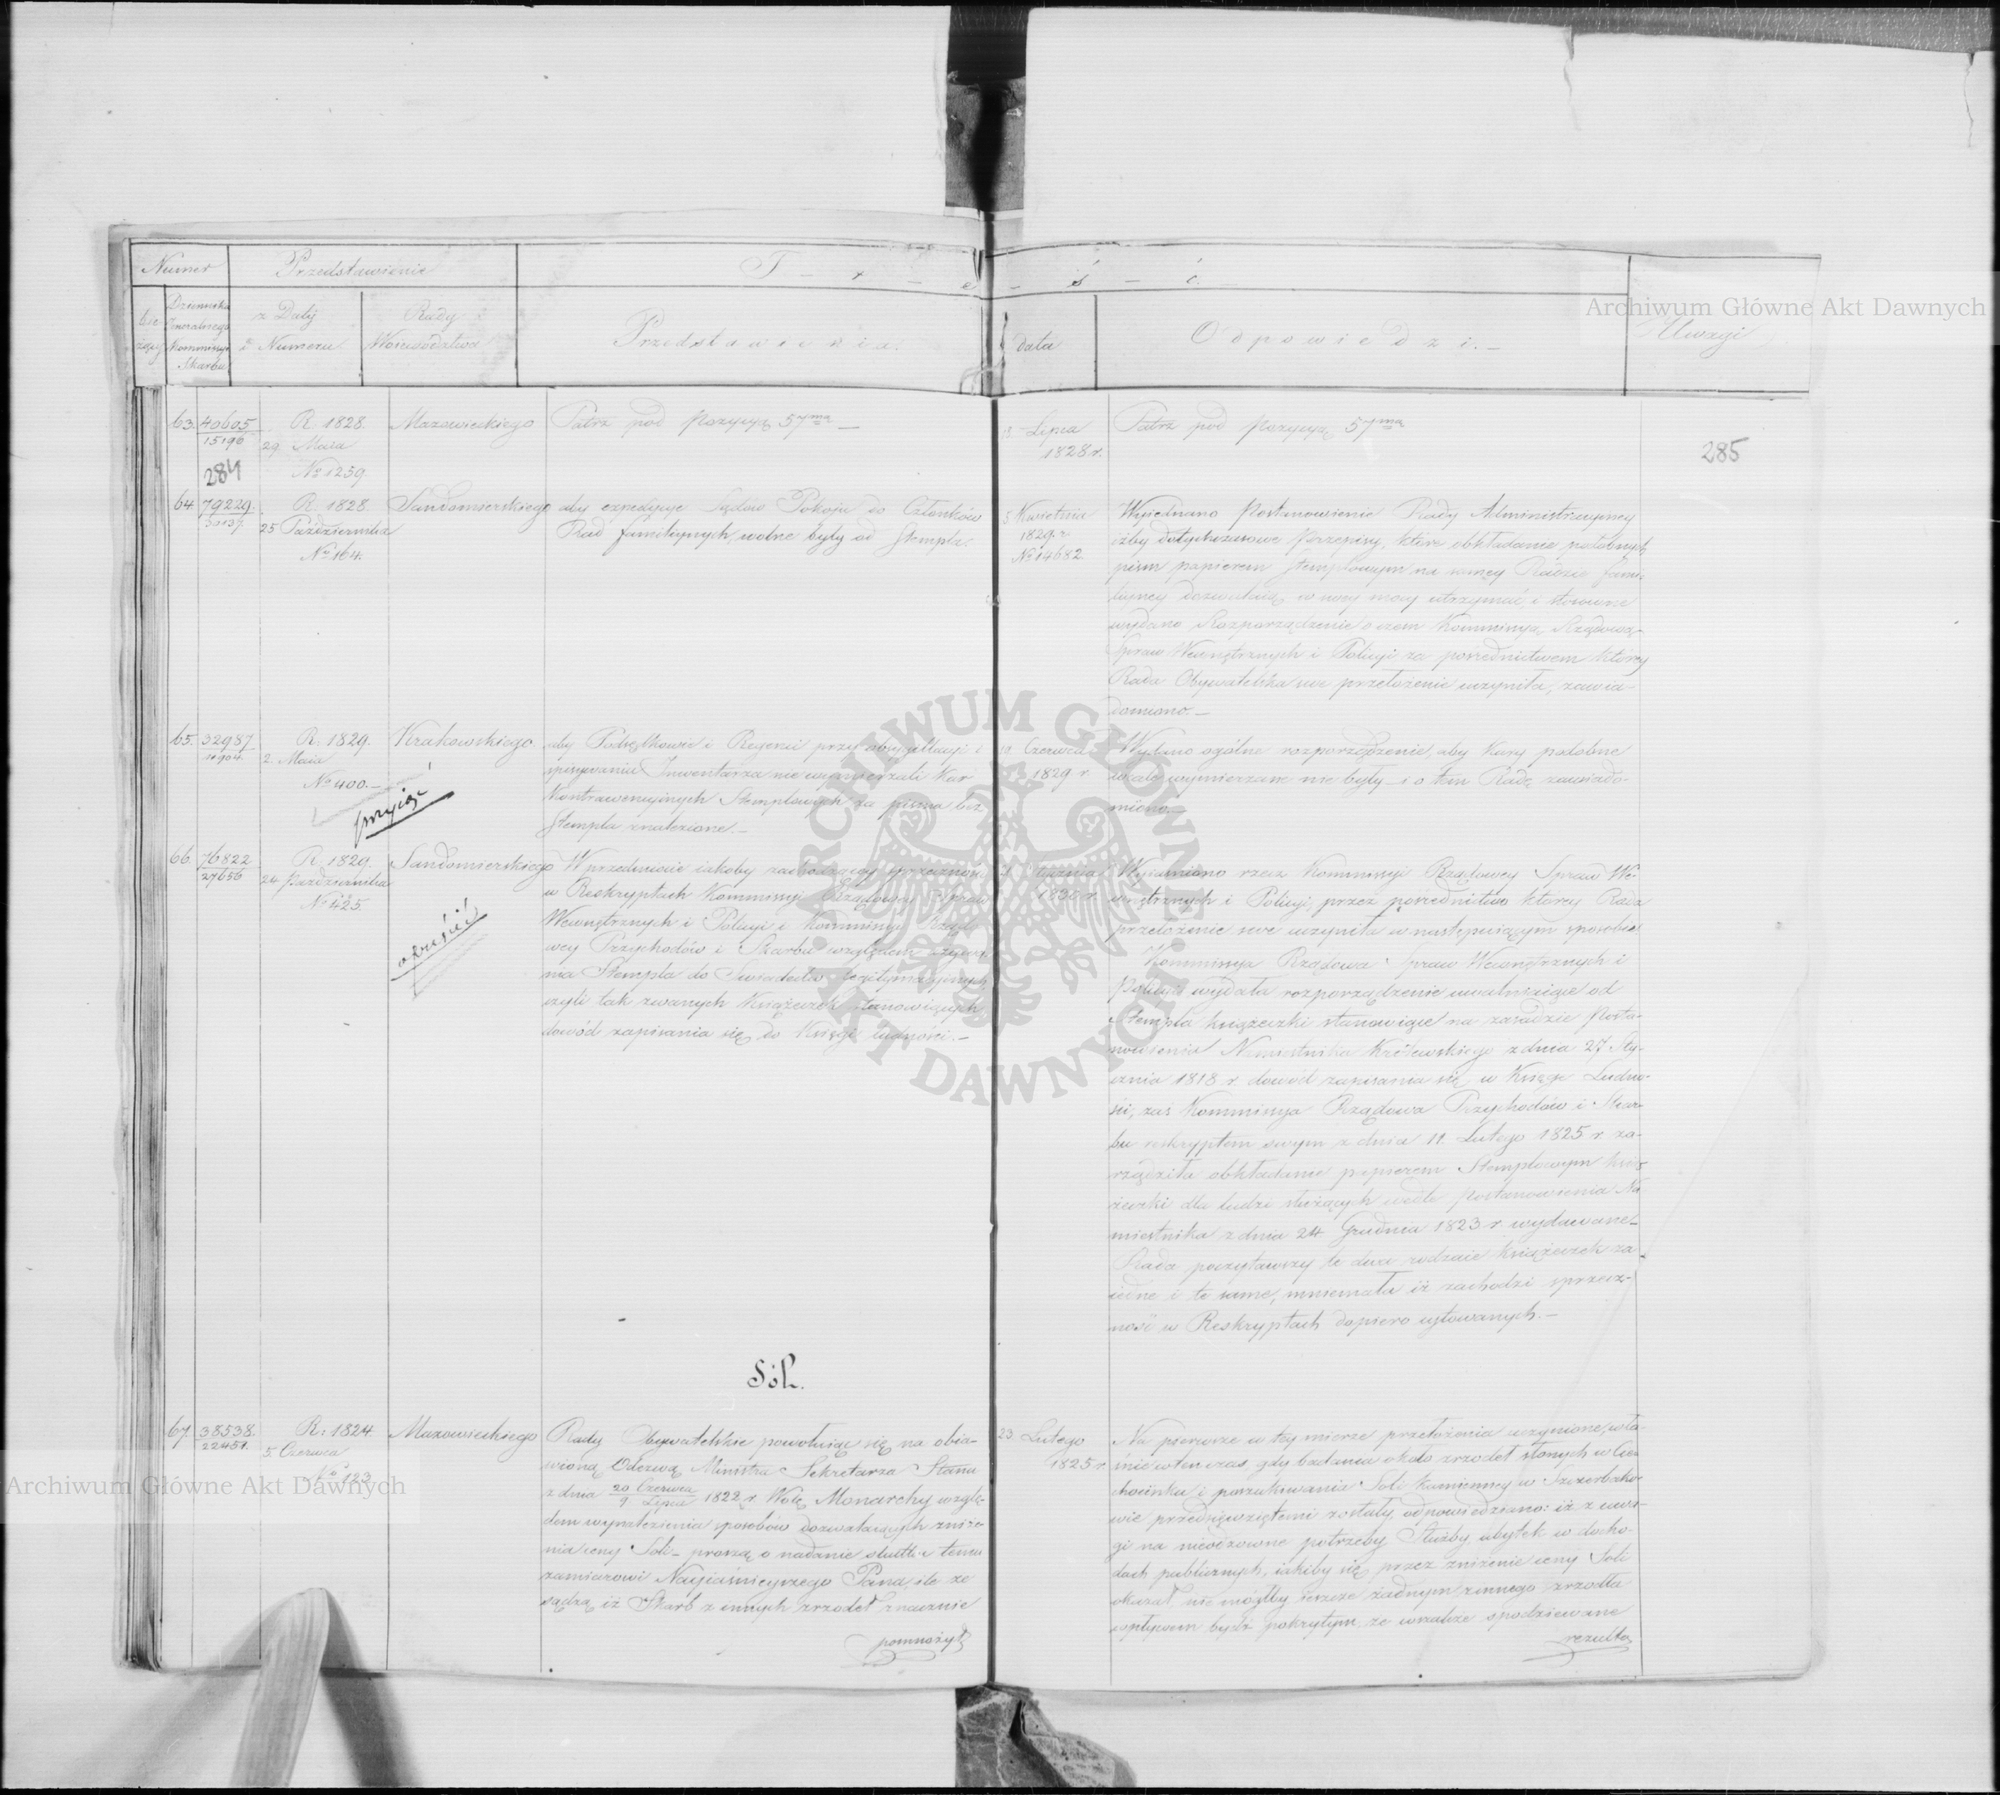 Numer
Przedstawienie
T - r - e - ś - ć -
Uwagi
bie-
żący
Dziennika
Generalnego
Kommissyi
Skarbu
z Daty
i Numeru
Rady
Woiewództwa
Przedstawienia.
data
Odpowiedzi. -
Archiwum Główne Akt Dawnych
63. 40605
15196
R. 1828.
29 Maia
№ 1259
Mazowieckiego
Patrz pod Pozycyą 57ma —
Lipca
1828 r.
Patrz pod Pozycyą 57ma
284
285
64. 79229.
R. 1828.
25 Października
No 164.
Sandomierskiego
aby expedycye Sądów Pokoju do Członków
Rad familiynych, wolne były od Stempla.
5 Kwietnia
1829. r.
№ 14682
Wyiednano Postanowienie Rady Administracyiney
iżby dotychczasowe Przepisy, które obkładanie podobnych
pism papierem Stemplowym na samey Radzie fami-
liyney dozwalaią w swey mocy utrzymać, i stosowne
wydano Rozporządzenie o czem Kommissyą Rządową
Spraw Wewnętrznych i Policyi za pośrednictwem którey
Rada Obywatelska swe przełożenie uczyniła, zawia-
domiono. —
65. 32987
10904.
R. 1829.
2. Maia
No 400. —
przyiąć
Krakowskiego
aby Podsędkowie i Regenci przy obsygillacyi i
spisywaniu Inwentarza nie wymierzali kar
Kontrawencyinych Stemplowych za pisma bez
Stempla znalezione. —
10 Czerwca
1829 r.
Wydano ogólne rozporządzenie, aby kary podobne
wcale wymierzane nie były — i o tem Radę zawiado-
miono. —
66. 76822
27656
R. 1829.
24 Października
No 425.
obiaśnić
Sandomierskiego
W przedmiocie iakoby zachodzącey sprzeczności
w Reskryptach Kommissyi Rządowey Spraw
Wewnętrznych i Policyi i Kommissyi Rządo-
wey Przychodów i Skarbu względem używa-
nia Stempla do Świadectw legitymacyinych
czyli tak zwanych Książeczek stanowiących
dowód zapisania się do Księgi ludności. —
Stycznia
1830 r.
Wyiaśniono rzecz Kommissyi Rządowey Spraw We-
wnętrznych i Policyi, przez pośrednictwo którey Rada
przełożenie swe uczyniła w następuiącym sposobie
Kommissya Rządowa Spraw Wewnętrznych i
Policyi wydała rozporządzenie uwalniaiące od
Stempla książeczki stanowiące na zasadzie Posta-
nowienia Namiestnika Królewskiego z dnia 27 Sty-
cznia 1818 r. dowód zapisania się w Księge Ludno-
ści, zaś Kommissya Rządowa Przychodów i Skar-
bu reskryptem swym z dnia 11. Lutego 1825 r. za-
rządziła obkładanie papierem Stemplowym ksią-
żeczki dla ludzi służących wedle Postanowienia Na-
miestnika z dnia 24 Grudnia 1823 r. wydawane —
Rada poczytawszy te dwa rodzaie książeczek za
iedne i te same, mniemała iż zachodzi sprzecz-
ność w Reskryptach dopiero cytowanych. —
Sól.
67. 38538.
22451.
R: 1824
5. Czerwca
No 123
Mazowieckiego
Rady Obywatelskie powołuiąc się na obia-
wioną Odezwą Ministra Sekretarza Stanu
z dnia 20 Czerwca / 9 Lipca 1822 r. Wolę Monarchy wzglę-
dem wynalezienia sposobów dozwalaiących zniże-
nia ceny Soli — proszą o nadanie skutku temu
zamiarowi Nayiaśnieyszego Pana, ile że
sądzą iż Skarb z innych źrzódeł znacznie
pomnożył
23 Lutego
1825 r.
Na pierwsze w tey mierze przełożenia uczynione, wła-
śnie wtenczas, gdy badania około źrzódeł słonych w Cie-
chocinku i poszukiwania Soli kamienney w Szczerbako-
wie przedsięwziętemi zostały, odpowiedziano: iż z uwa-
gi na nieodzowne potrzeby Służby ubytek w docho-
dach publicznych, iakiby się przez zniżenie ceny Soli
okazał, nie mógłby ieszcze żadnym z innego źrzódła
wpływem bydź pokrytym, że wszakże spodziewane
rezulta
Archiwum Główne Akt Dawnych
ARCHIWUM GŁÓWNE AKT DAWNYCH